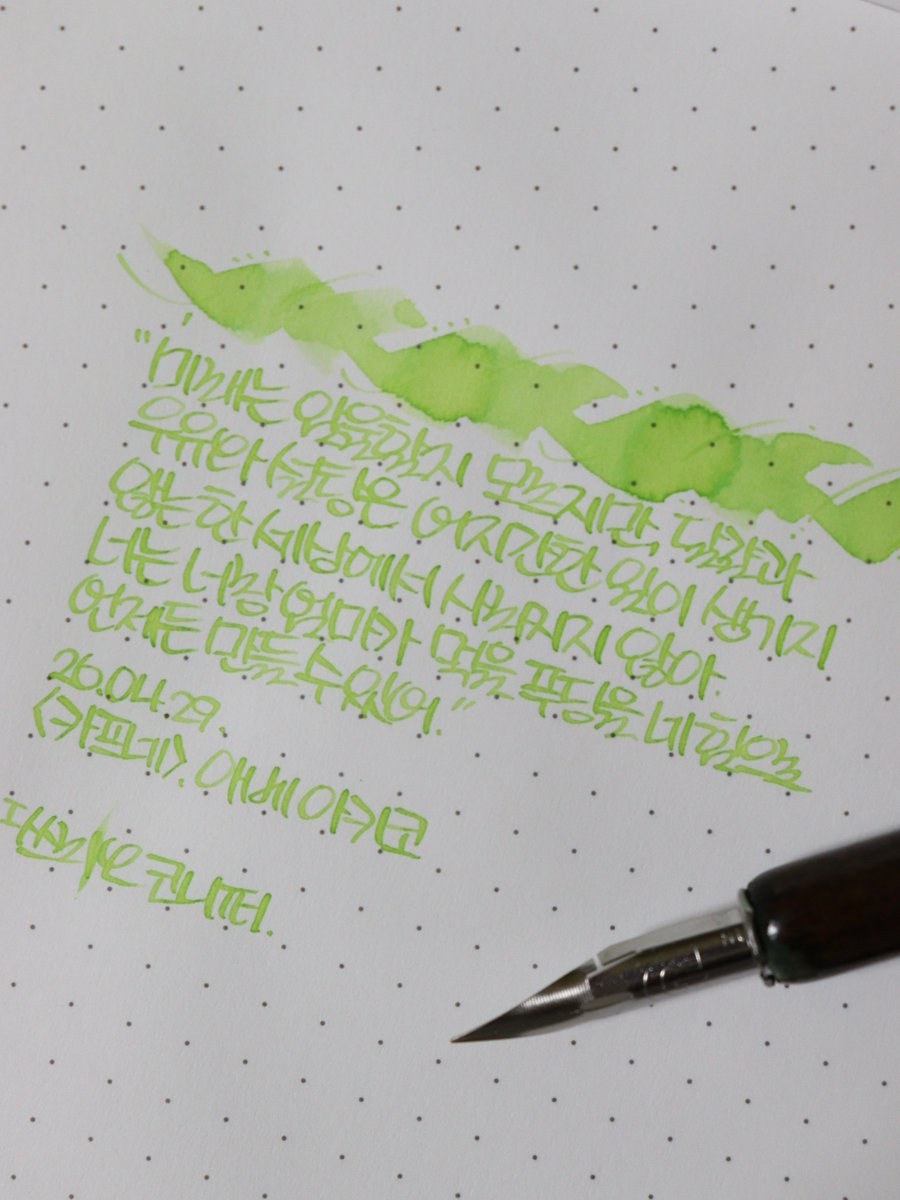 "미래는 없을런지 모르지만, 달걀과
우유와 설탕은 어지간한 일이 생기지
않는 한 세상에서 사라지지 않아.
너는 너랑 엄마가 먹을 푸딩을 네 힘으로
언제든 만들 수 있어."
26.04.29.
<카프네>. 아베 아키코
코니퍼.